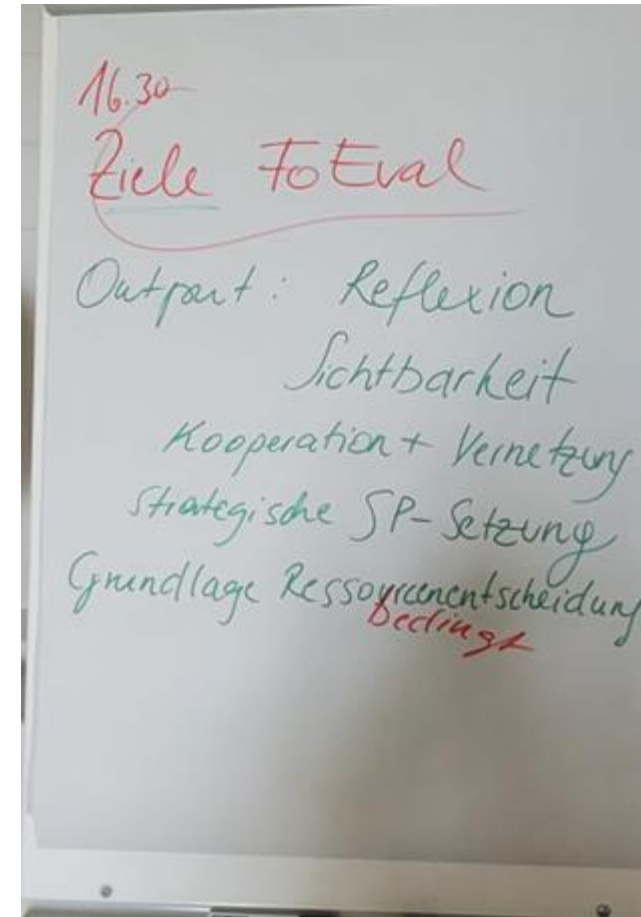 16.30
Ziele FoEval
Output: Reflexion
Sichtbarkeit
Kooperation + Vernetzung
Strategische SP-Setzung
Grundlage Ressourcenentscheidung
bedingt